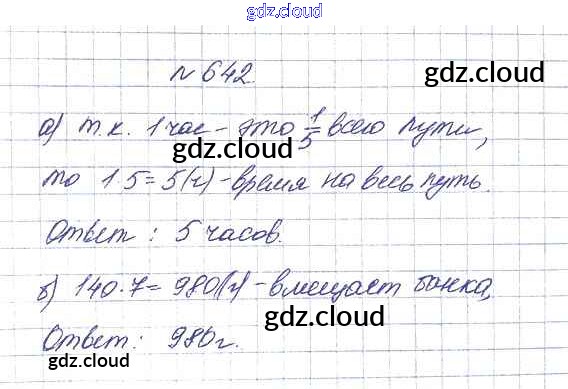 gdz.cloud
№ 642.
gdz.cloud
а) т.к. 1 час - это 1/5 всего пути,
gdz.cloud
то 1·5=5(ч) - время на весь путь.
Ответ: 5 часов.
gdz.cloud
gdz.cloud
б) 140·7=980(г) - вмещает банка,
gdz.cloud
Ответ: 980г.
gdz.cloud
gdz.cloud